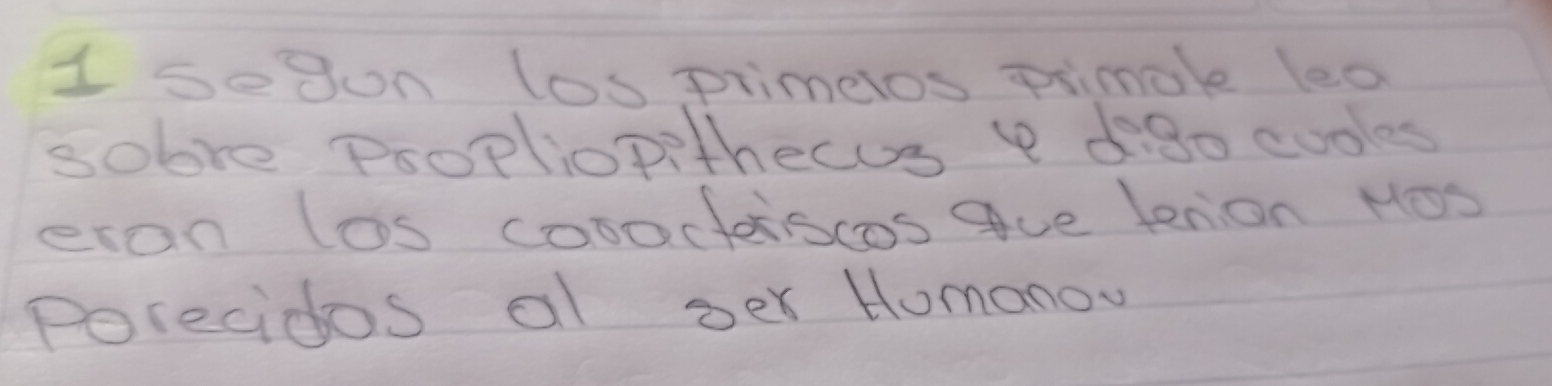 1 segun los primeros primate lea
sobre Propliopithecus y diga cuales
eran las caracteriscas que tenian Mas
Parecidas al ser Humano